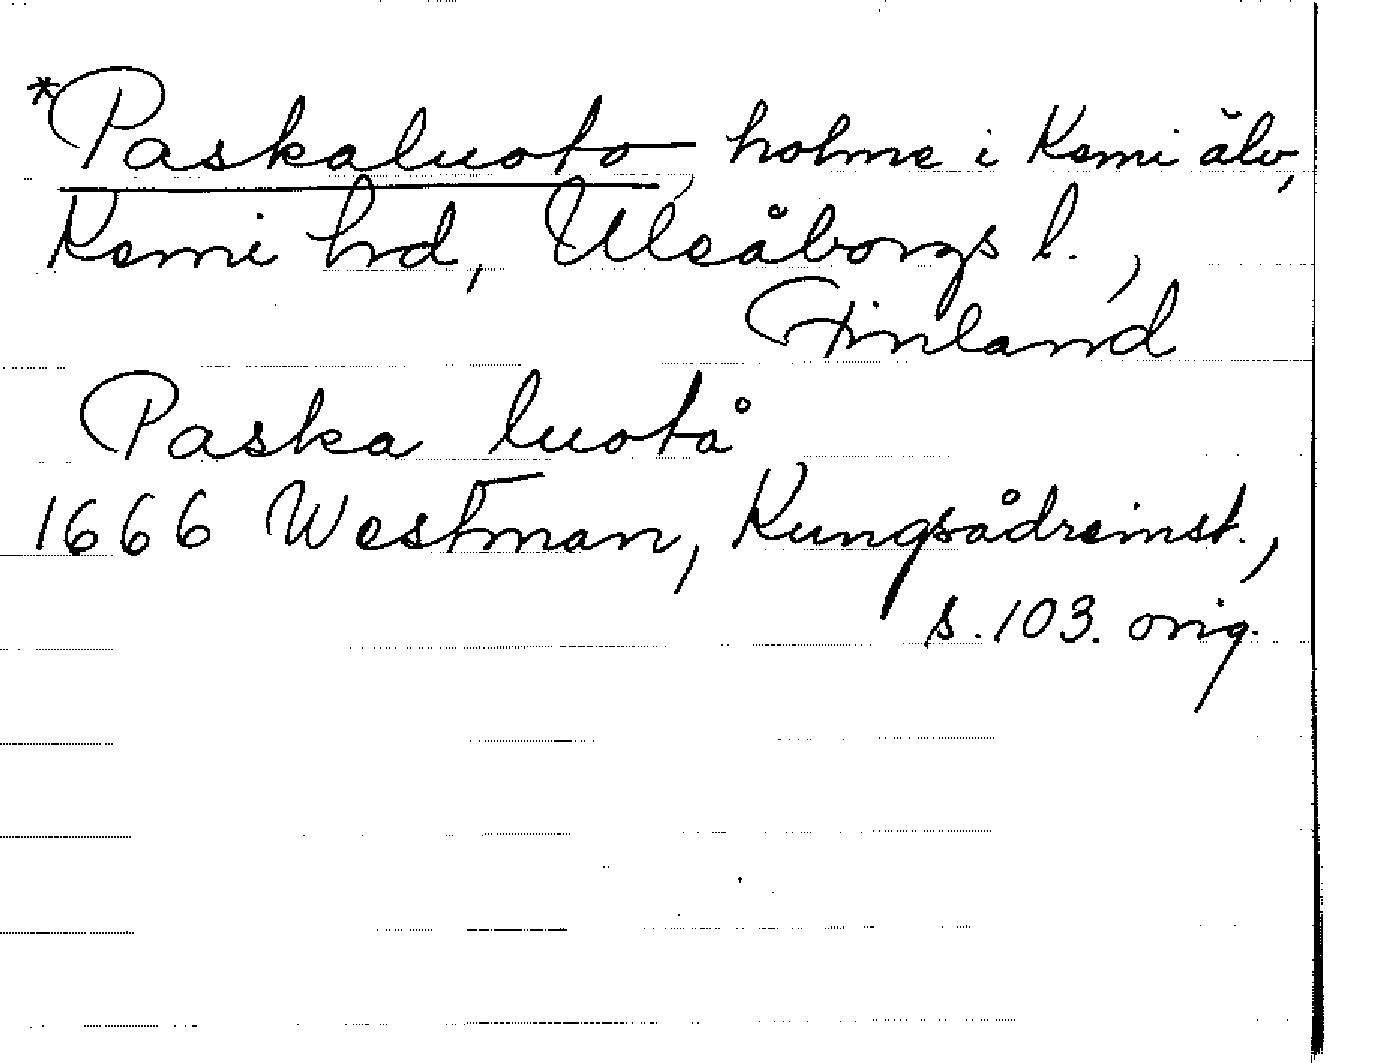 *Paskaluoto, holme i Kemi älv,
Kemi hrd, Uleåborgs l.,
Finland
Paska luotå
1666 Westman, Kungsådreinst.,
s. 103. orig.